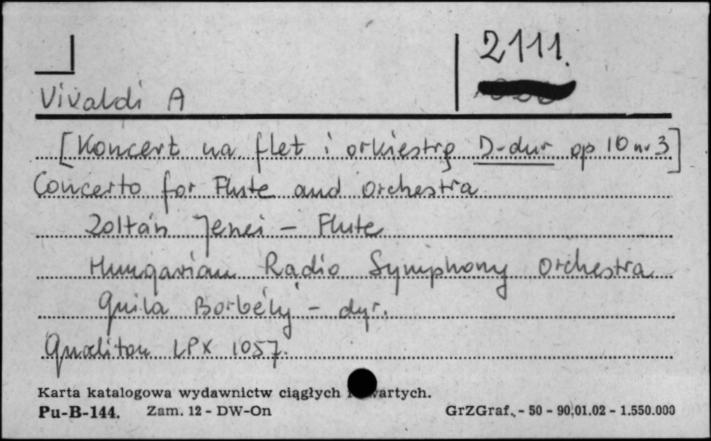 2111.
Vivaldi A
[Koncert na flet i orkiestrę D-dur op 10 nr 3]
Concerto for Flute and Orchestra
Zoltán Jenei - Flute
Hungarian Radio Symphony Orchestra
Gyula Borbély - dyr.
Qualiton LPX 1057.
Karta katalogowa wydawnictw ciągłych i zwartych.
Pu-B-144. Zam. 12 - DW-On GrZGraf. - 50 - 90.01.02 - 1.550.000